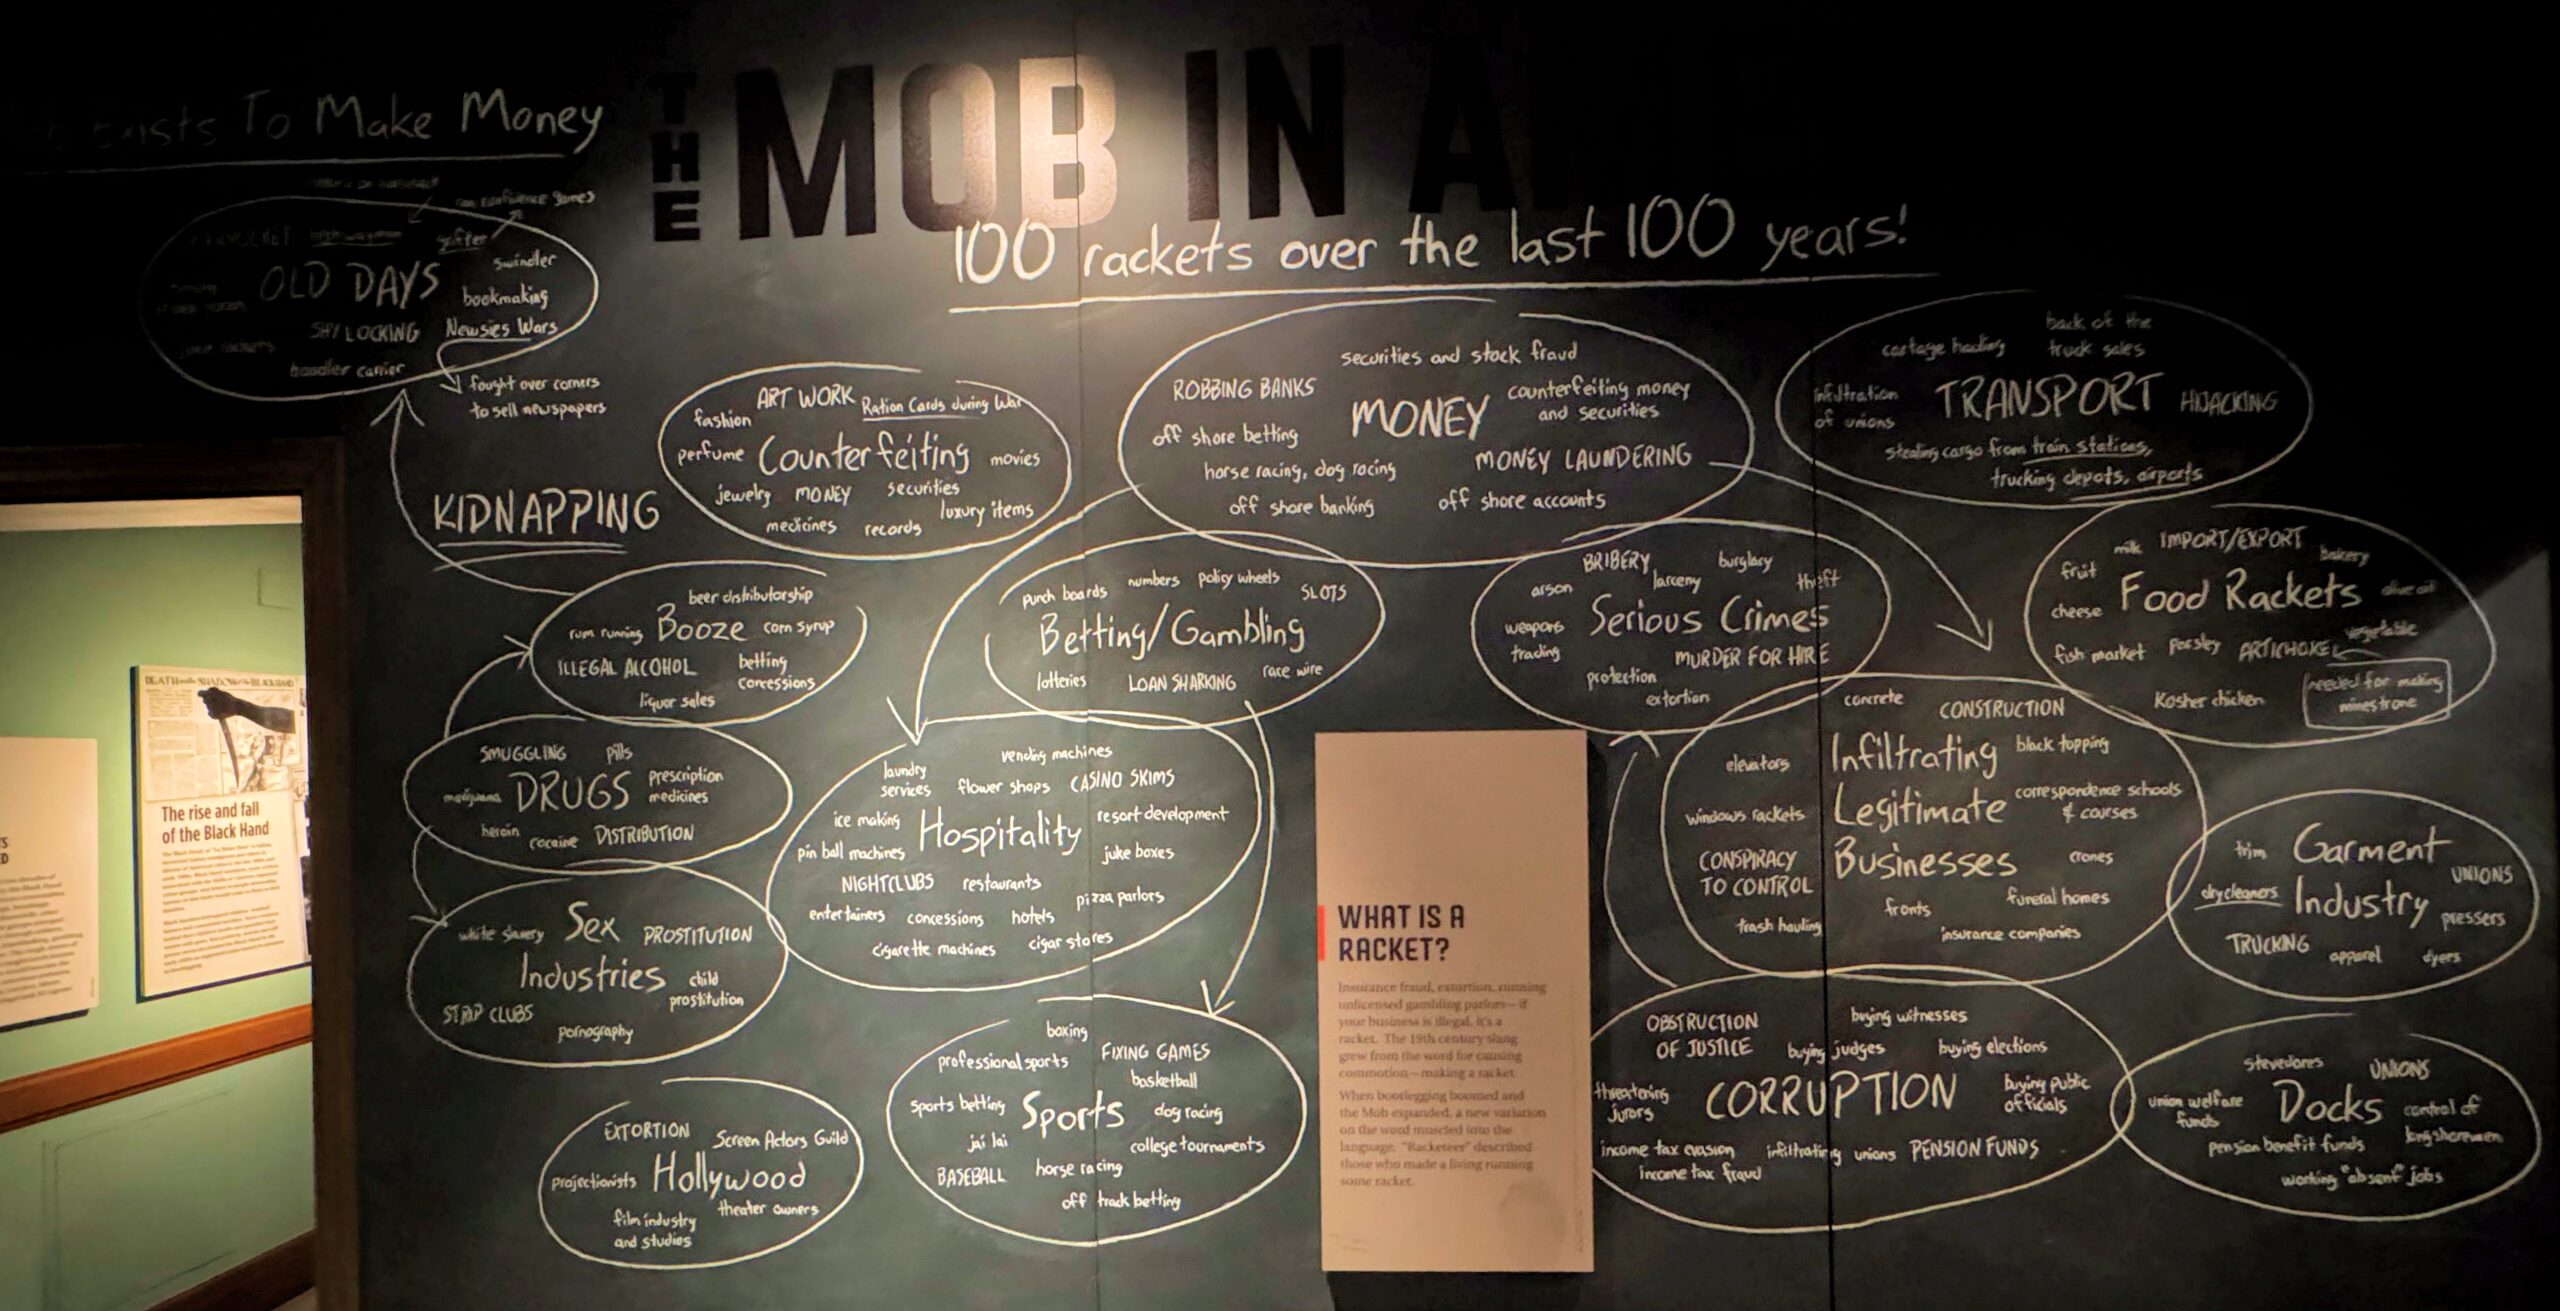 exists To Make Money
THE MOB IN A
100 rackets over the last 100 years!
con confidence games
highwayman
grifter
OLD DAYS
swindler
bookmaking
SHYLOCKING
Newsies Wars
boodler carrier
fought over corners
to sell newspapers
KIDNAPPING
ART WORK
Ration Cards during War
fashion
perfume
Counterfeiting
movies
jewelry
MONEY
securities
luxury items
medicines
records
securities and stock fraud
ROBBING BANKS
MONEY
counterfeiting money
and securities
off shore betting
horse racing, dog racing
MONEY LAUNDERING
off shore banking
off shore accounts
back of the
truck sales
cartage hauling
infiltration
of unions
TRANSPORT
HIJACKING
stealing cargo from train stations,
trucking depots, airports
beer distributorship
rum running
Booze
corn syrup
ILLEGAL ALCOHOL
betting
concessions
liquor sales
punch boards
numbers
policy wheels
SLOTS
Betting/Gambling
lotteries
LOAN SHARKING
race wire
BRIBERY
burglary
arson
larceny
theft
Serious Crimes
weapons
trading
MURDER FOR HIRE
protection
extortion
milk
IMPORT/EXPORT
bakery
fruit
Food Rackets
olive oil
cheese
fish market
parsley
ARTICHOKE
vegetable
Kosher chicken
needed for making
minestrone
SMUGGLING
pills
marijuana
DRUGS
prescription
medicines
heroin
cocaine
DISTRIBUTION
vending machines
laundry
services
flower shops
CASINO SKIMS
ice making
Hospitality
resort development
pin ball machines
juke boxes
NIGHTCLUBS
restaurants
pizza parlors
entertainers
concessions
hotels
cigarette machines
cigar stores
concrete
CONSTRUCTION
elevators
Infiltrating
Legitimate
Businesses
black topping
windows rackets
correspondence schools
& courses
CONSPIRACY
TO CONTROL
cranes
fronts
funeral homes
trash hauling
insurance companies
trim
Garment
Industry
UNIONS
dry cleaners
pressers
TRUCKING
apparel
dyers
white slavery
Sex
Industries
PROSTITUTION
child
prostitution
STRIP CLUBS
pornography
boxing
professional sports
FIXING GAMES
basketball
sports betting
Sports
dog racing
jai lai
college tournaments
BASEBALL
horse racing
off track betting
EXTORTION
Screen Actors Guild
projectionists
Hollywood
film industry
and studios
theater owners
OBSTRUCTION
OF JUSTICE
buying witnesses
buying judges
buying elections
threatening
jurors
CORRUPTION
buying public
officials
income tax evasion
infiltrating unions
PENSION FUNDS
income tax fraud
stevedores
UNIONS
union welfare
funds
Docks
control of
longshoremen
pension benefit funds
working "absent" jobs
WHAT IS A
RACKET?
Insurance fraud, extortion, running
unlicensed gambling parlors—if
your business is illegal, it's a
racket. The 19th century slang
grew from the word for causing
commotion—making a racket.
When bootlegging boomed and
the Mob expanded, a new variation
on the word muscled into the
language. "Racketeer" described
those who made a living running
some racket.
DEATH SHADOW of the BLACK HAND
The rise and fall
of the Black Hand